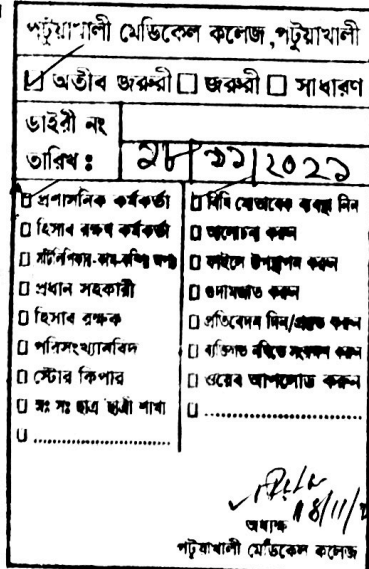 পটুয়াখালী মেডিকেল কলেজ,পটুয়াখালী
অতীব জরুরী জরুরী সাধারণ
ডাইরী নং
তারিখ :
প্রশাসনিক কর্মকর্তা
হিসাব রক্ষণ কর্মকর্তা
প্রধান সহকারী
হিসাব রক্ষক
পরিসংখ্যানবিদ
স্টোর কিপার
সঃ সঃ ছাত্র ছাত্রী শাখা
....................
বিধি মোতাবেক ব্যবস্থা নিন
আলোচনা করুন
ফাইলে উপস্থাপন করুন
গুদামজাত করুন
প্রতিবেদন দিন/প্রস্তুত করুন
ব্যক্তিগত নথিতে সংরক্ষণ করুন
ওয়েব আপলোড করুন
....................
অধ্যক্ষ
পটুয়াখালী মেডিকেল কলেজ